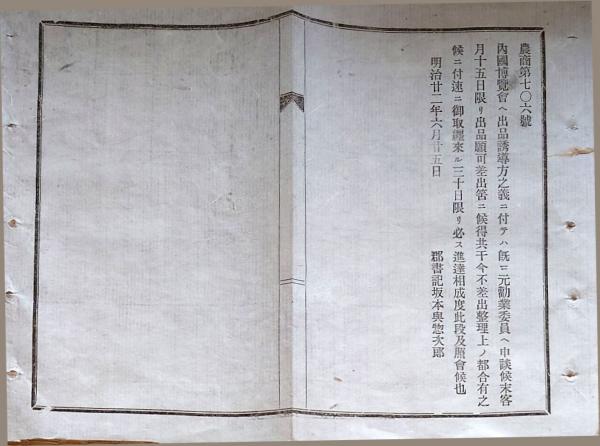 農商第七〇六號
內國博覽會ヘ出品誘導方之義ニ付テハ旣ニ元勸業委員ヘ申談候末客
月十五日限リ出品願可差出筈ニ候得共于今不差出整理上ノ都合有之
候ニ付速ニ御取纒來ル三十日限リ必ス進達相成度此段及照會候也
明治廿二年六月廿五日
郡書記坂本與惣次郎